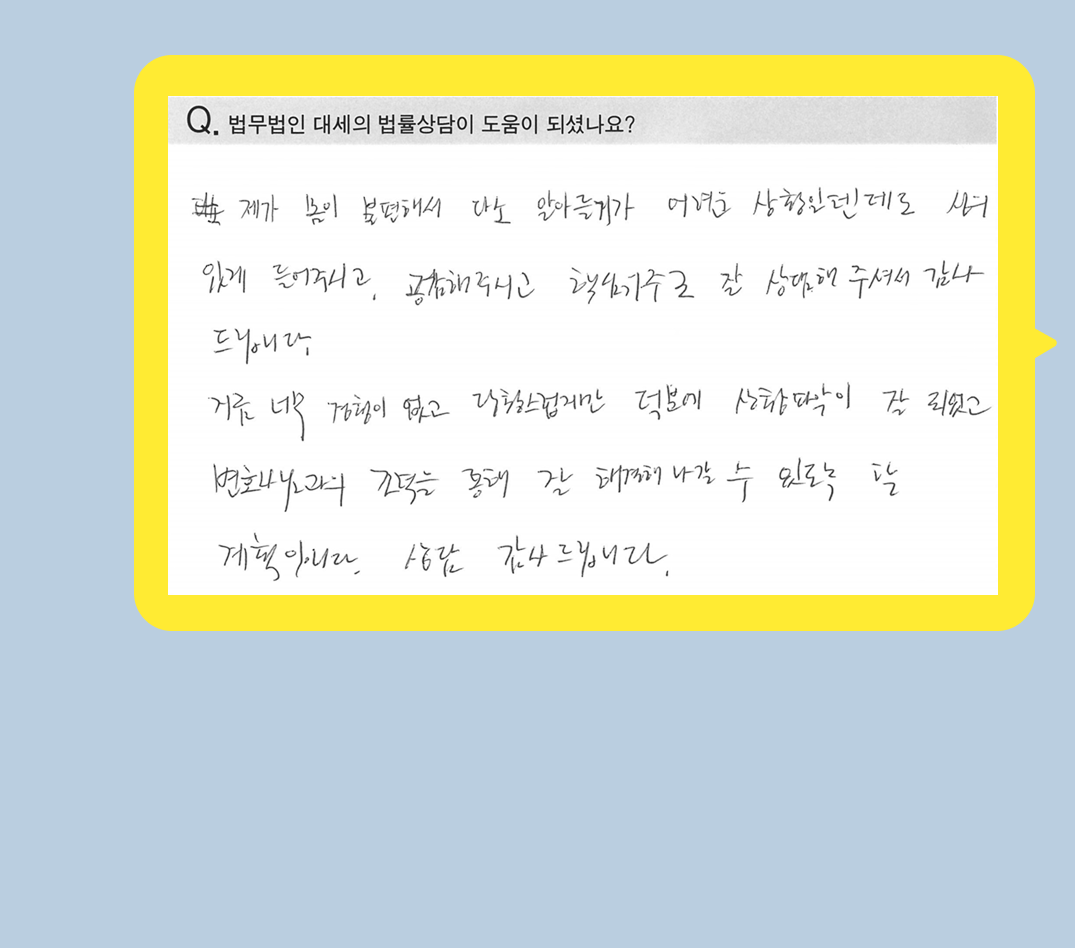 Q. 법무법인 대세의 법률상담이 도움이 되셨나요?
제가 몸이 불편해서 다소 알아듣기가 어려운 상황인텐데도 심여
있게 들어주시고, 공감해주시고 핵심위주로 잘 상담해 주셔서 감사
드립니다.
거류 너무 경험이 없고 당황스럽지만 덕분에 상황파악이 잘 되었고
변호사님과의 조덕을 통해 잘 해결해 나갈 수 있도록 할
계획입니다. 상담 감사드립니다.